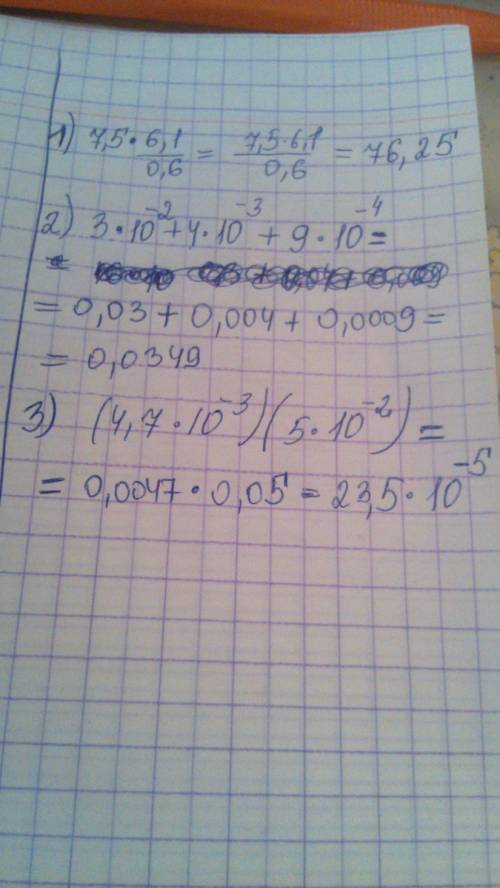 1) 7,5 · 6,1/0,6 = 7,5·6,1/0,6 = 76,25
2) 3·10⁻²+4·10⁻³ + 9·10⁻⁴=
=
= 0,03 + 0,004 + 0,0009 =
= 0,0349
3) (4,7·10⁻³)(5·10⁻²) =
= 0,0047·0,05 = 23,5·10⁻⁵